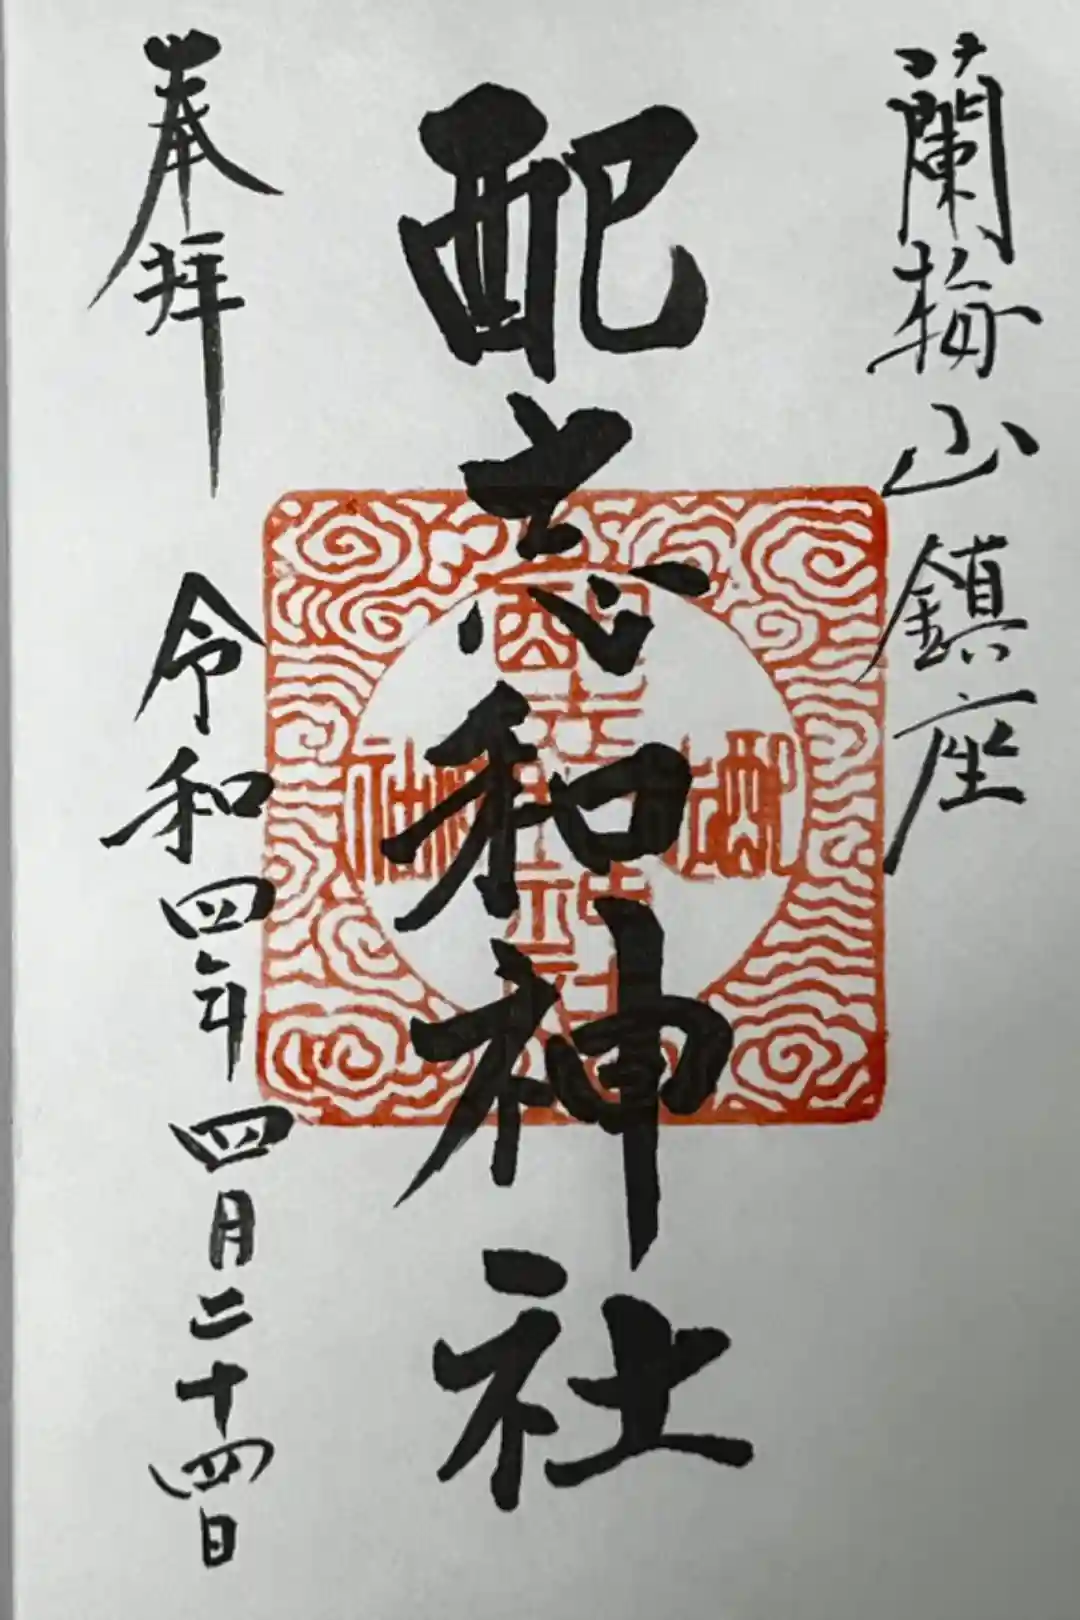 蘭梅山鎮座
配志和神社
奉拝 令和四年四月二十四日